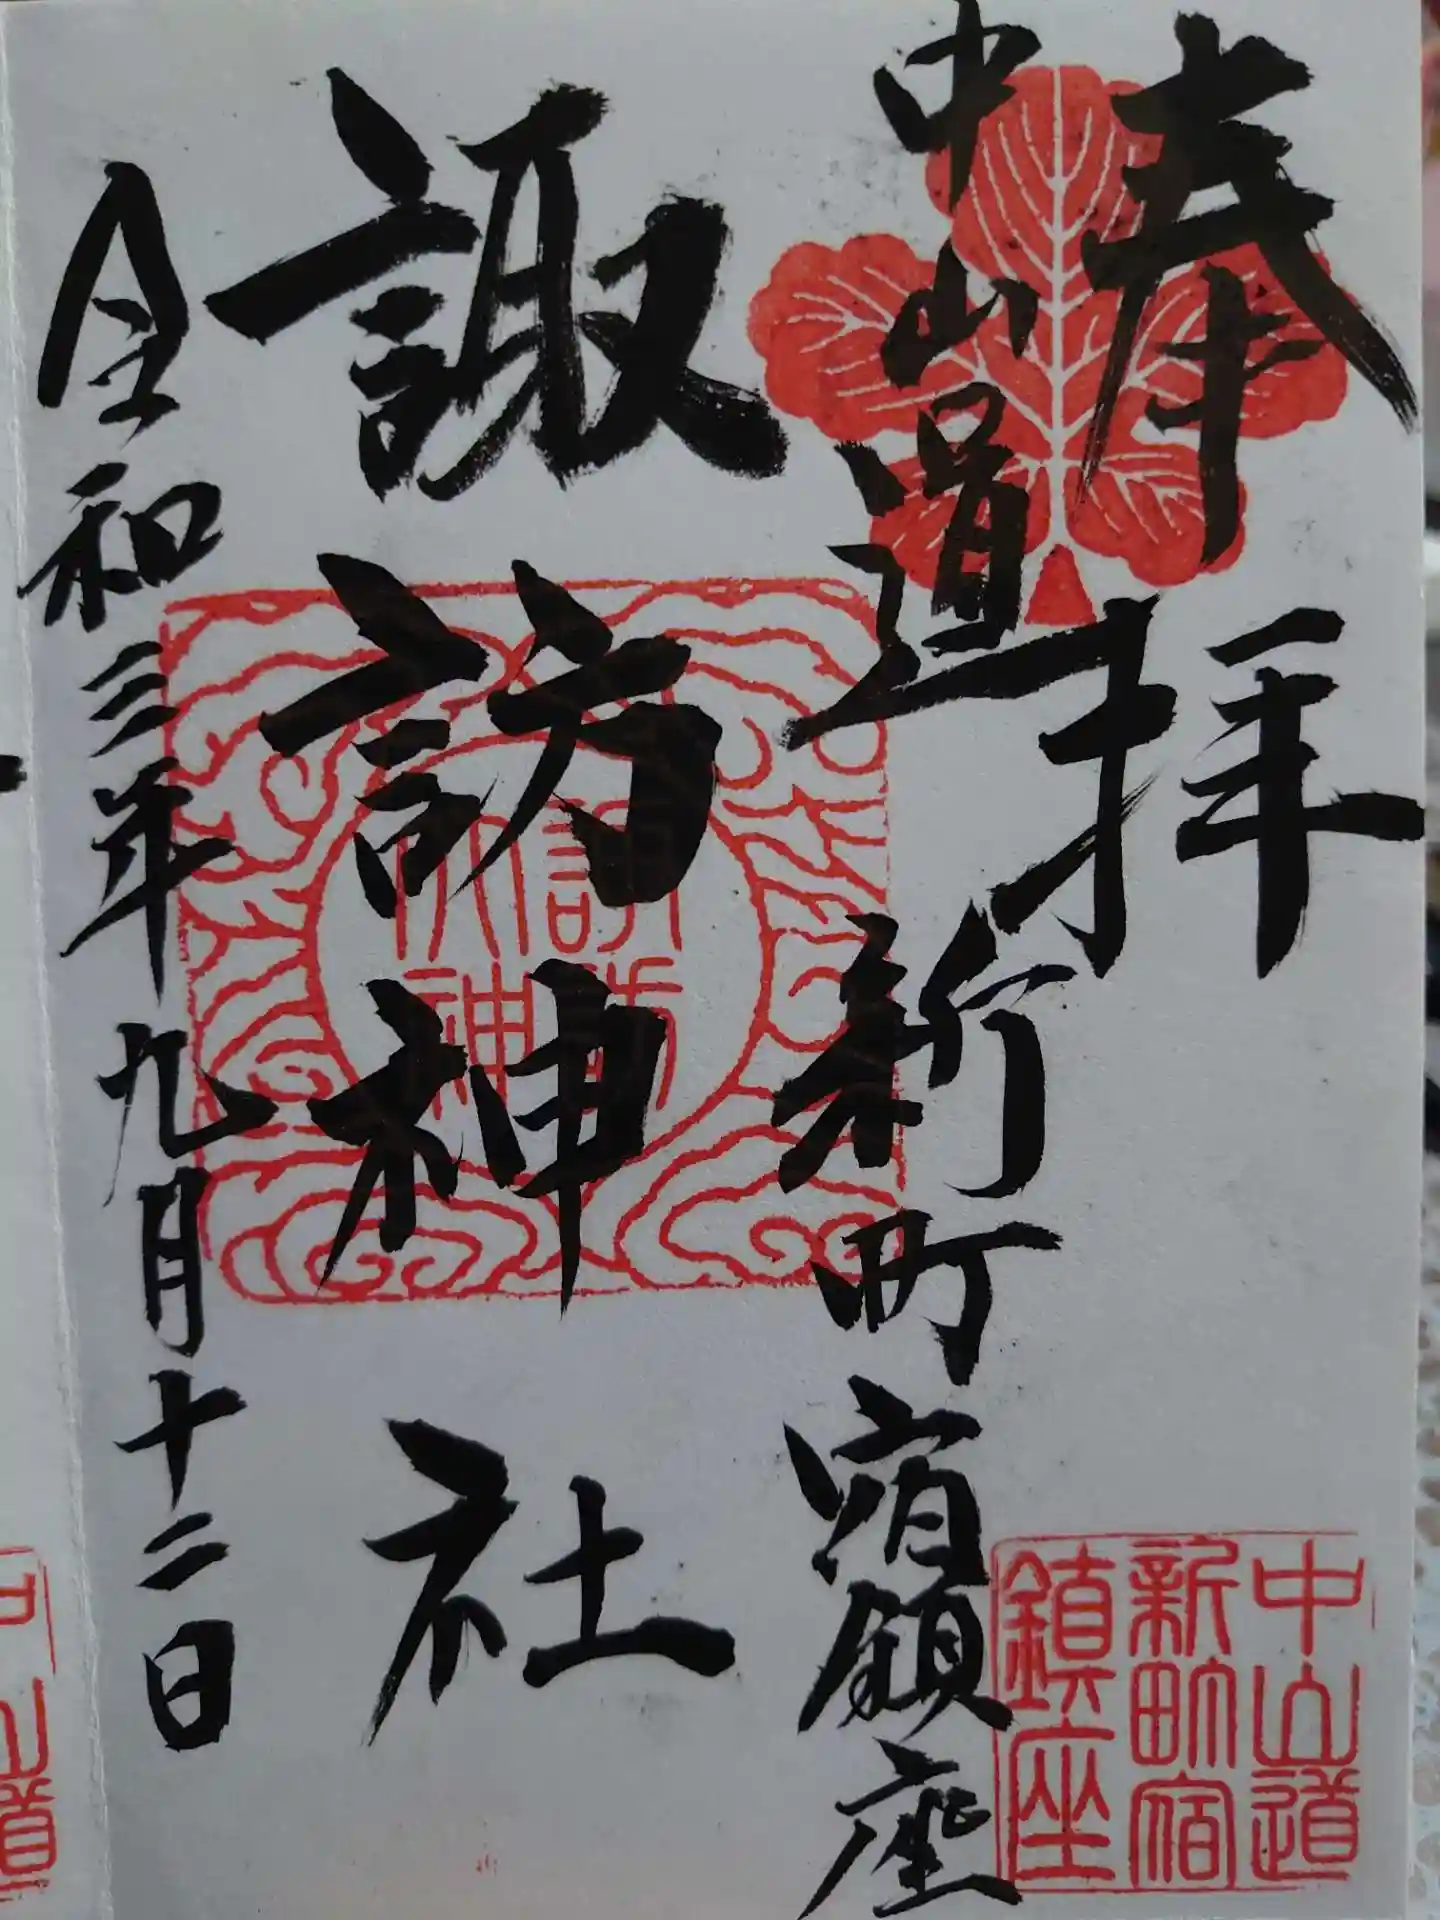 奉拝
中山道新町宿鎮座
諏訪神社
令和三年九月十二日
諏訪
神
中山道
新町宿
鎮座